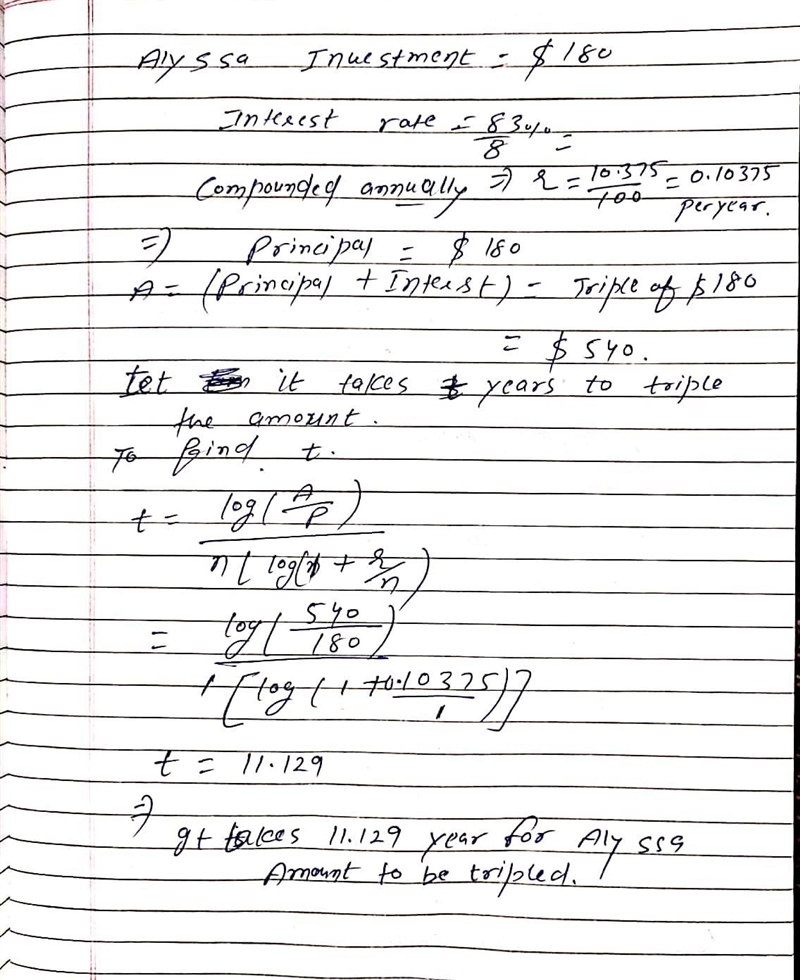 Alyssa Investment = $180
Interest rate = 83%/8 =
Compounded annually => r = 10.375/100 = 0.10375 per year.
=> Principal = $180
A = (Principal + Interest) = Triple of $180
= $540.
Let it takes t years to triple
the amount.
To find t.
t = log(A/P) / n(log(1 + r/n)
= log(540/180) / 1[log(1 + 0.10375/1)]
t = 11.129
=>
It takes 11.129 year for Alyssa
Amount to be tripled.